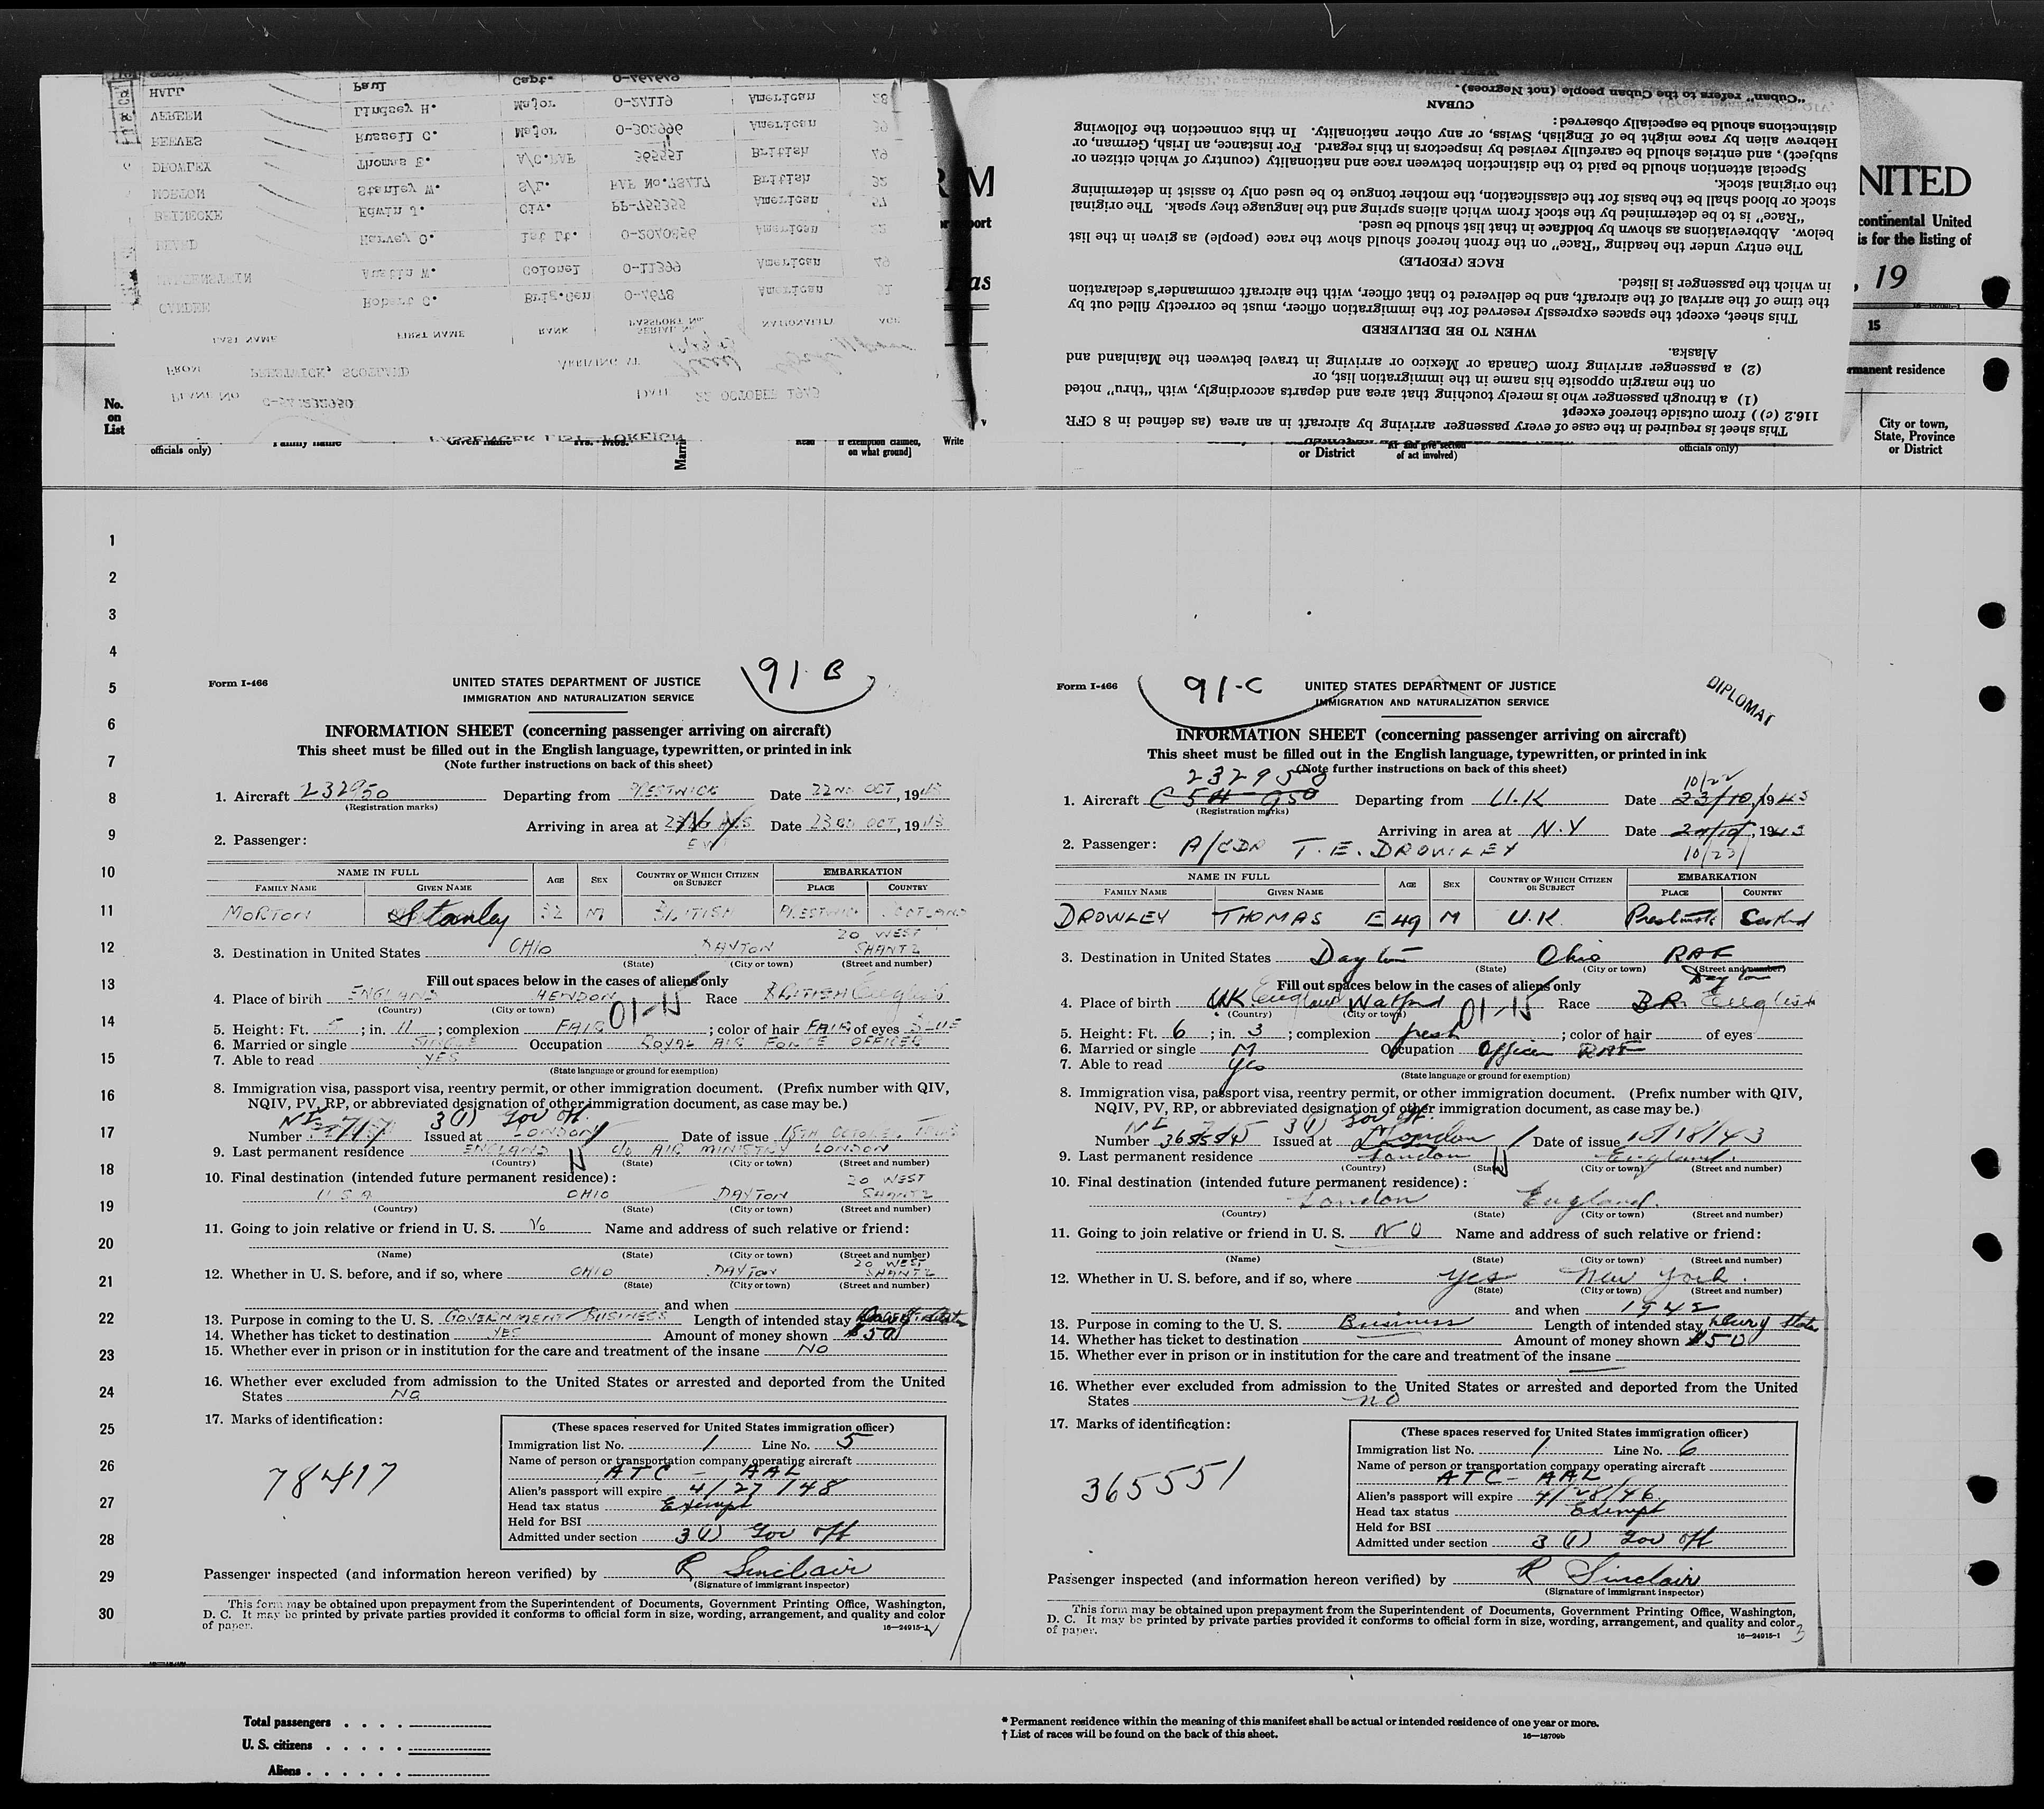 HALL Paul Capt. O-464649
VEREEN Lindsey H. Major O-24119 American 28
REEVES Russell C. Major O-302996 American 39
DROWLEY Thomas E. A/C.RAF 365551 British 49
MORTON Stanley W. S/L. RAF No.78417 British 32
REINECKE Edwin J. Civ. PP-755355 American 57
Harvey O. 1st Lt. American
Austin W. Colonel O-11399 American 49
CANDEE Robert C. Brig.Gen O-4678 American 51
LAST NAME FIRST NAME RANK SERIAL No. PASSPORT No. NATIONALITY AGE
FROM PRESTWICK, SCOTLAND ARRIVING AT
PLANE NO DATE 22 OCTOBER 1943
PASSENGER LIST FOREIGN
This sheet is required in the case of every passenger arriving by aircraft in an area (as defined in 8 CFR
116.2 (c)) from outside thereof except
(1) a through passenger who is merely touching that area and departs accordingly, with “thru” noted
on the margin opposite his name in the immigration list, or
(2) a passenger arriving from Canada or Mexico or arriving in travel between the Mainland and
Alaska.
WHEN TO BE DELIVERED
This sheet, except the spaces expressly reserved for the immigration officer, must be correctly filled out by
the time of the arrival of the aircraft, and be delivered to that officer, with the aircraft commander's declaration
in which the passenger is listed.
RACE (PEOPLE)
The entry under the heading “Race” on the front hereof should show the race (people) as given in the list
below. Abbreviations as shown by boldface in that list should be used.
“Race” is to be determined by the stock from which aliens spring and the language they speak. The original
stock or blood shall be the basis for the classification, the mother tongue to be used only to assist in determining
the original stock.
Special attention should be paid to the distinction between race and nationality (country of which citizen or
subject), and entries should be carefully revised by inspectors in this regard. For instance, an Irish, German, or
Hebrew alien by race might be of English, Swiss, or any other nationality. In this connection the following
distinctions should be especially observed:
CUBAN
“Cuban” refers to the Cuban people (not Negroes).
NITED
continental United
is for the listing of
, 19
15
rmanent residence
City or town,
State, Province
or District
No.
on
List
officials only) Family name Given name Yrs. Mos. Read if exemption claimed, on what ground] Write
or District of act involved) officials only)
1
2
3
4
5
6
7
8
9
10
11
12
13
14
15
16
17
18
19
20
21
22
23
24
25
26
27
28
29
30
Form I-466 UNITED STATES DEPARTMENT OF JUSTICE 91-B
IMMIGRATION AND NATURALIZATION SERVICE
INFORMATION SHEET (concerning passenger arriving on aircraft)
This sheet must be filled out in the English language, typewritten, or printed in ink
(Note further instructions on back of this sheet)
1. Aircraft 232950 Departing from PRESTWICK Date 22ND OCT, 1943
(Registration marks)
Arriving in area at Date 23RD OCT, 1943
2. Passenger:
NAME IN FULL AGE SEX COUNTRY OF WHICH CITIZEN OR SUBJECT EMBARKATION
FAMILY NAME GIVEN NAME PLACE COUNTRY
MORTON Stanley 32 M BRITISH PRESTWICK SCOTLAND
3. Destination in United States OHIO DAYTON 20 WEST SHANTZ
(State) (City or town) (Street and number)
Fill out spaces below in the cases of aliens only
4. Place of birth ENGLAND HENDON Race BRITISH English
(Country) (City or town)
5. Height: Ft. 5; in. 11; complexion FAIR; color of hair FAIR of eyes BLUE
6. Married or single SINGLE Occupation ROYAL AIR FORCE OFFICER
7. Able to read YES
(State language or ground for exemption)
8. Immigration visa, passport visa, reentry permit, or other immigration document. (Prefix number with QIV,
NQIV, PV, RP, or abbreviated designation of other immigration document, as case may be.)
3 (1) Gov Off.
Number Issued at LONDON Date of issue 18TH OCTOBER,
9. Last permanent residence ENGLAND c/o AIR MINISTRY LONDON
(Country) (State) (City or town) (Street and number)
10. Final destination (intended future permanent residence):
U S A OHIO DAYTON 20 WEST SHANTZ
(Country) (State) (City or town) (Street and number)
11. Going to join relative or friend in U. S. No Name and address of such relative or friend:
(Name) (State) (City or town) (Street and number)
12. Whether in U. S. before, and if so, where OHIO DAYTON 20 WEST SHANTZ
(State) (City or town) (Street and number)
and when
13. Purpose in coming to the U. S. GOVERNMENT BUSINESS Length of intended stay
14. Whether has ticket to destination YES Amount of money shown $50
15. Whether ever in prison or in institution for the care and treatment of the insane NO
16. Whether ever excluded from admission to the United States or arrested and deported from the United
States NO
17. Marks of identification:
78417
(These spaces reserved for United States immigration officer)
Immigration list No. 1 Line No. 5
Name of person or transportation company operating aircraft
ATC - AAL
Alien's passport will expire 4/27/48
Head tax status Exempt
Held for BSI
Admitted under section 3(1) Gov off
Passenger inspected (and information hereon verified) by R Sinclair
(Signature of immigrant inspector)
This form may be obtained upon prepayment from the Superintendent of Documents, Government Printing Office, Washington,
D. C. It may be printed by private parties provided it conforms to official form in size, wording, arrangement, and quality and color
of paper. 16—24915-1
Form I-466 91-C UNITED STATES DEPARTMENT OF JUSTICE DIPLOMAT
IMMIGRATION AND NATURALIZATION SERVICE
INFORMATION SHEET (concerning passenger arriving on aircraft)
This sheet must be filled out in the English language, typewritten, or printed in ink
(Note further instructions on back of this sheet)
232950 10/22
1. Aircraft C 54 950 Departing from U.K Date 23/10/1943
(Registration marks)
Arriving in area at N.Y Date 24/10, 1943
2. Passenger: A/CDR T. E. DROWLEY 10/23/
NAME IN FULL AGE SEX COUNTRY OF WHICH CITIZEN OR SUBJECT EMBARKATION
FAMILY NAME GIVEN NAME PLACE COUNTRY
DROWLEY THOMAS E 49 M U.K. Prestwick Scotland
3. Destination in United States Dayton Ohio RAF
(State) (City or town) (Street and number)
Dayton
Fill out spaces below in the cases of aliens only
4. Place of birth UK England Watford Race BR. English
(Country) (City or town)
5. Height: Ft. 6; in. 3; complexion fresh; color of hair of eyes
6. Married or single M Occupation Officer RAF
7. Able to read Yes
(State language or ground for exemption)
8. Immigration visa, passport visa, reentry permit, or other immigration document. (Prefix number with QIV,
NQIV, PV, RP, or abbreviated designation of other immigration document, as case may be.)
3 (1) Gov Off.
Number Issued at London Date of issue 10/18/43
9. Last permanent residence London England.
(Country) (State) (City or town) (Street and number)
10. Final destination (intended future permanent residence):
London England.
(Country) (State) (City or town) (Street and number)
11. Going to join relative or friend in U. S. NO Name and address of such relative or friend:
(Name) (State) (City or town) (Street and number)
12. Whether in U. S. before, and if so, where Yes New York.
(State) (City or town) (Street and number)
and when 1942
13. Purpose in coming to the U. S. Business Length of intended stay
14. Whether has ticket to destination Amount of money shown $50
15. Whether ever in prison or in institution for the care and treatment of the insane
16. Whether ever excluded from admission to the United States or arrested and deported from the United
States NO
17. Marks of identification:
365551
(These spaces reserved for United States immigration officer)
Immigration list No. 1 Line No. 6
Name of person or transportation company operating aircraft
ATC - AAL
Alien's passport will expire 4/28/46
Head tax status Exempt
Held for BSI
Admitted under section 3 (1) Gov off
Passenger inspected (and information hereon verified) by R Sinclair
(Signature of immigrant inspector)
This form may be obtained upon prepayment from the Superintendent of Documents, Government Printing Office, Washington,
D. C. It may be printed by private parties provided it conforms to official form in size, wording, arrangement, and quality and color
of paper. 16—24915-1
Total passengers . . . .
U. S. citizens . . . . .
Aliens . . . . . .
* Permanent residence within the meaning of this manifest shall be actual or intended residence of one year or more.
† List of races will be found on the back of this sheet. 16—18709b